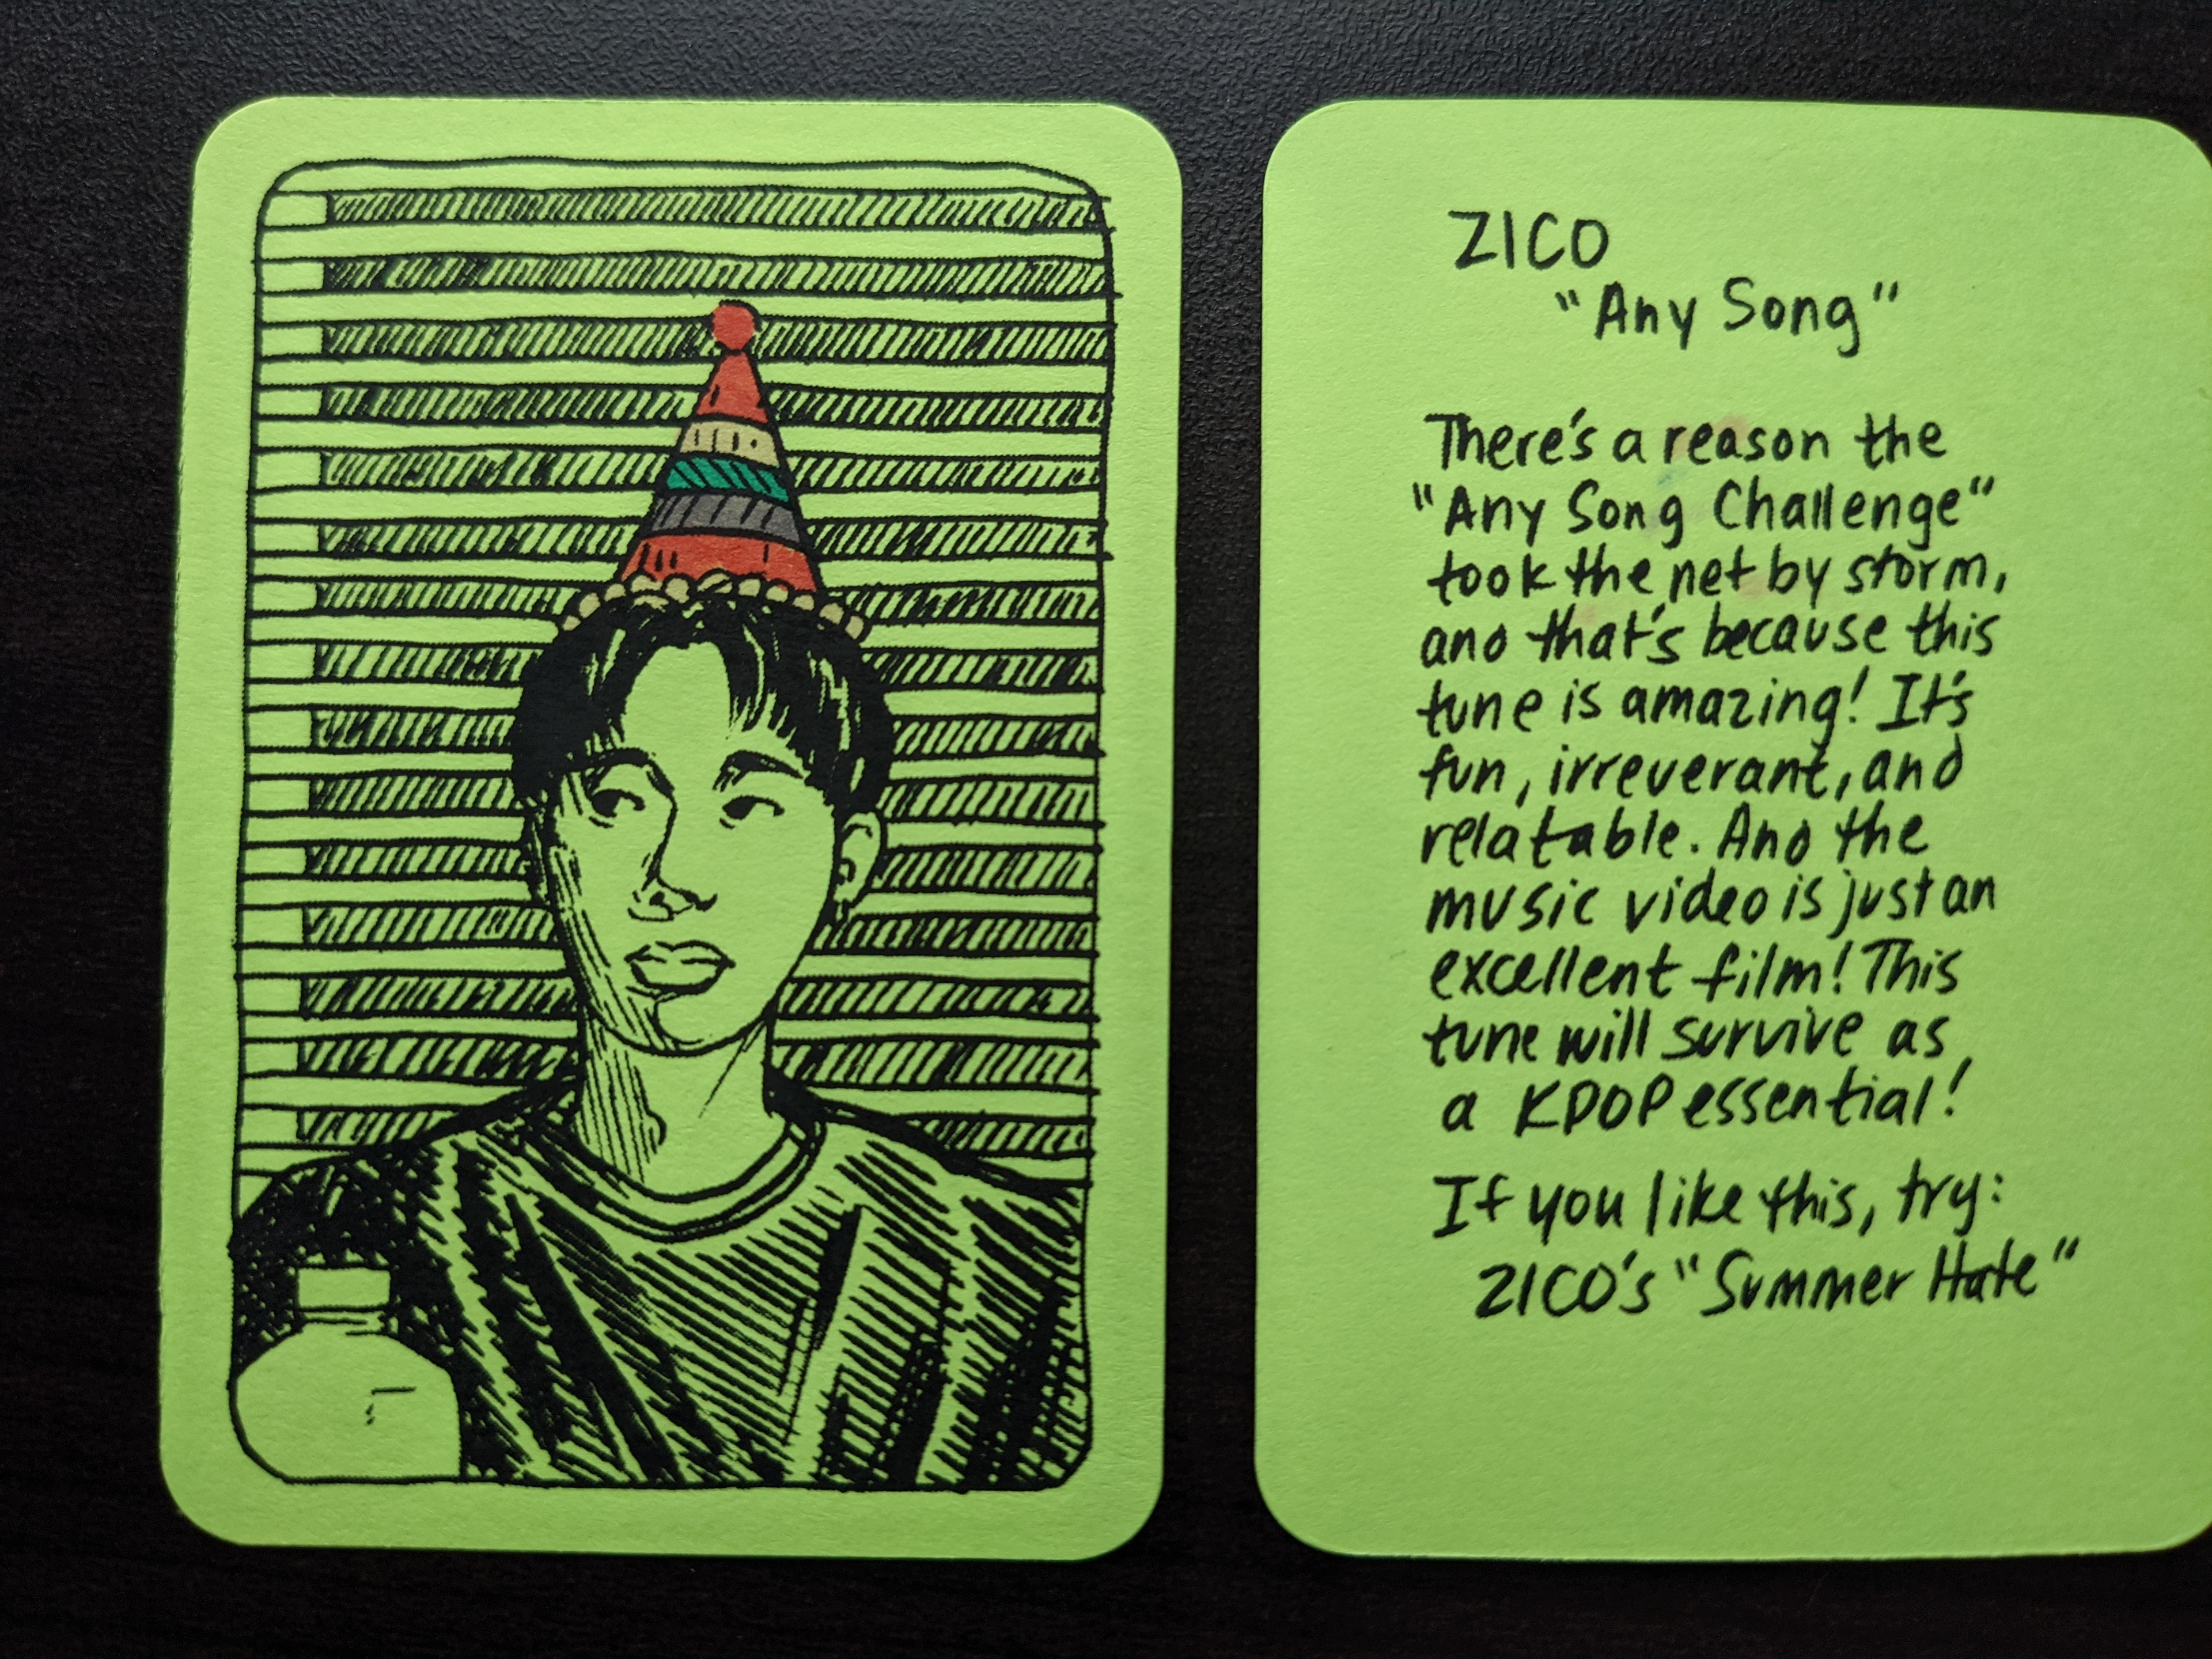 ZICO
"Any Song"
There's a reason the
"Any Song Challenge"
took the net by storm,
and that's because this
tune is amazing! It's
fun, irreverant, and
relatable. And the
music video is just an
excellent film! This
tune will survive as
a KPOP essential!
If you like this, try:
ZICO's "Summer Hate"